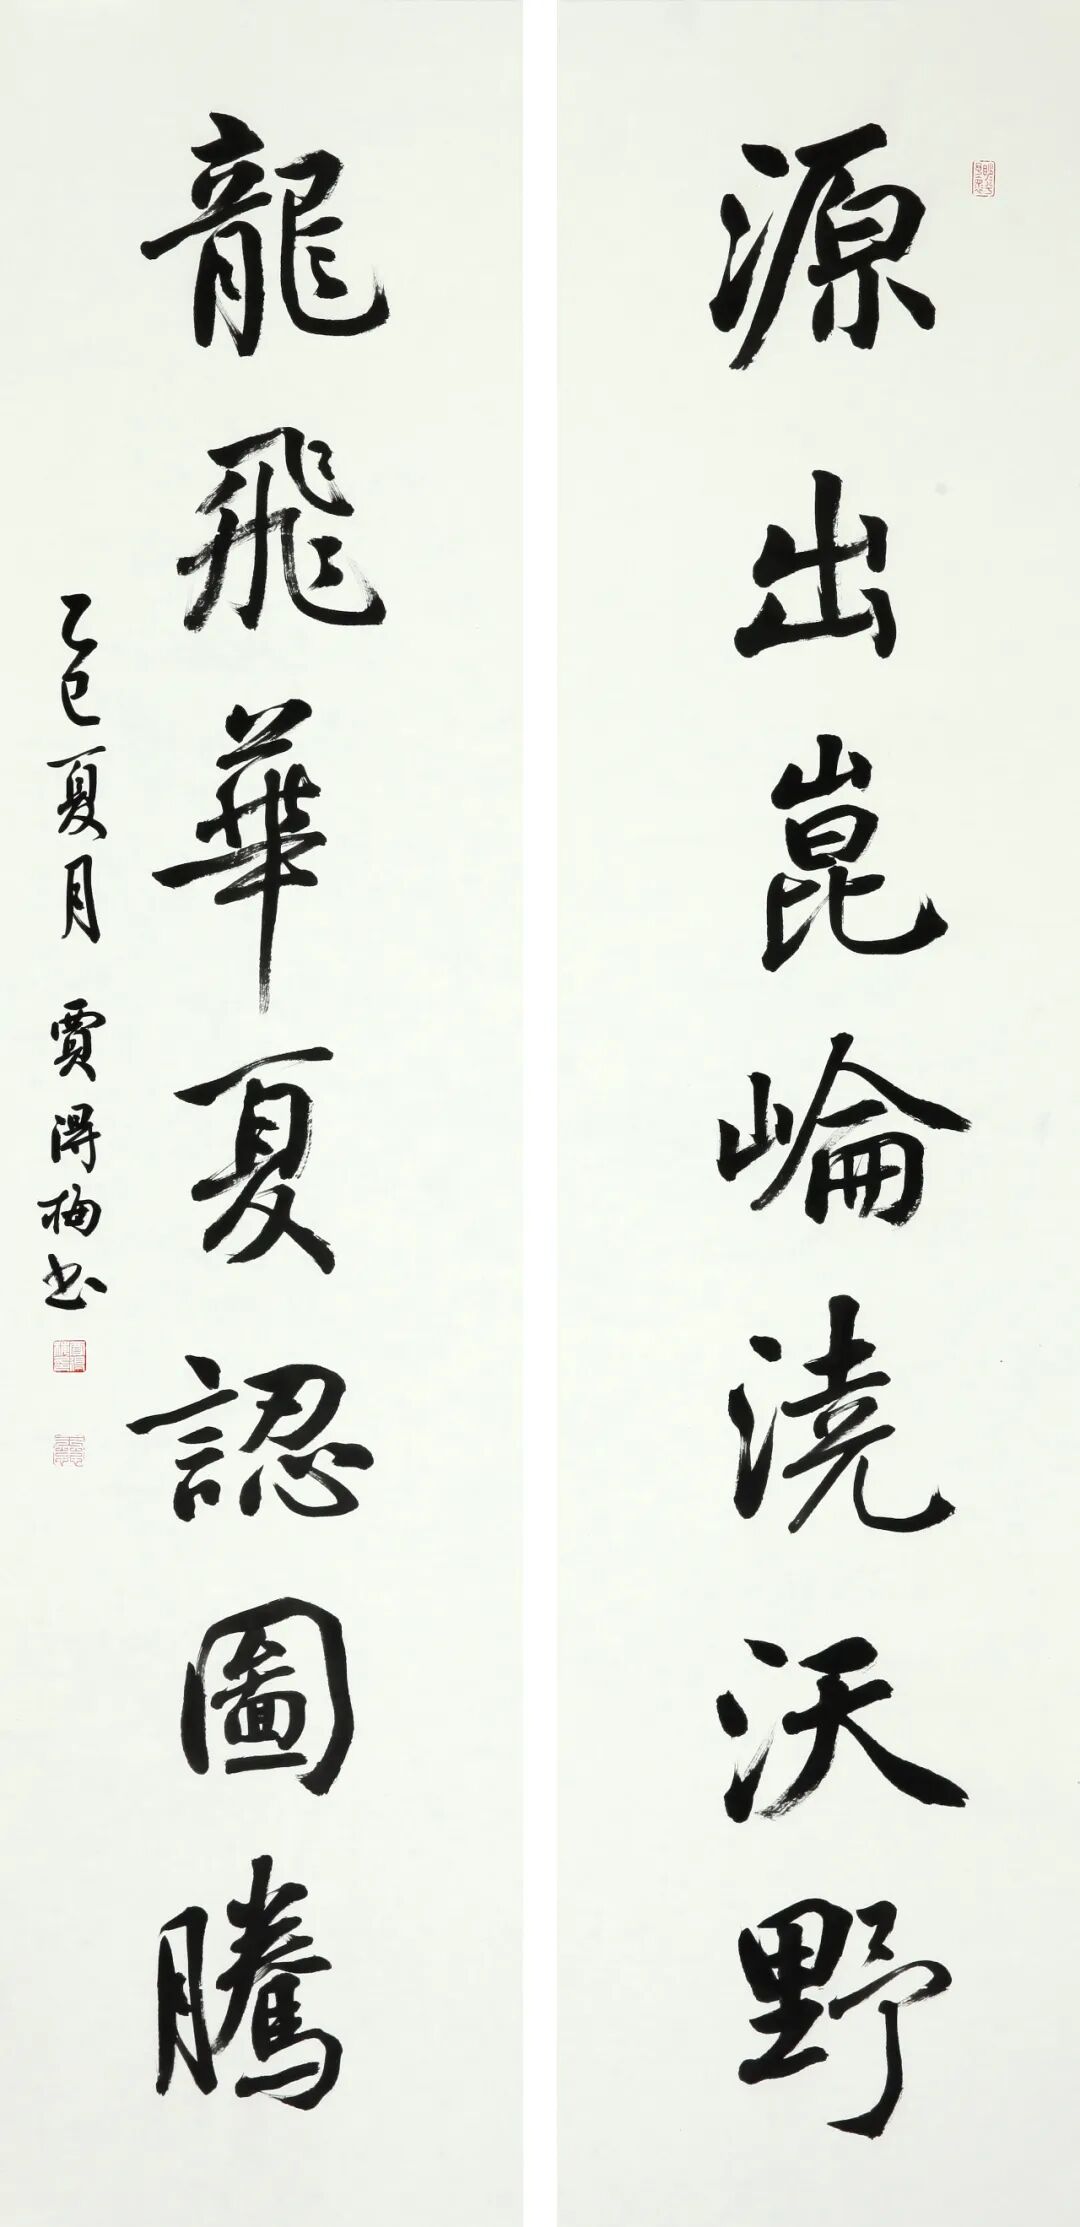 源出崑崙澆沃野
龍飛華夏認圖騰
乙巳夏月 賈得梅书